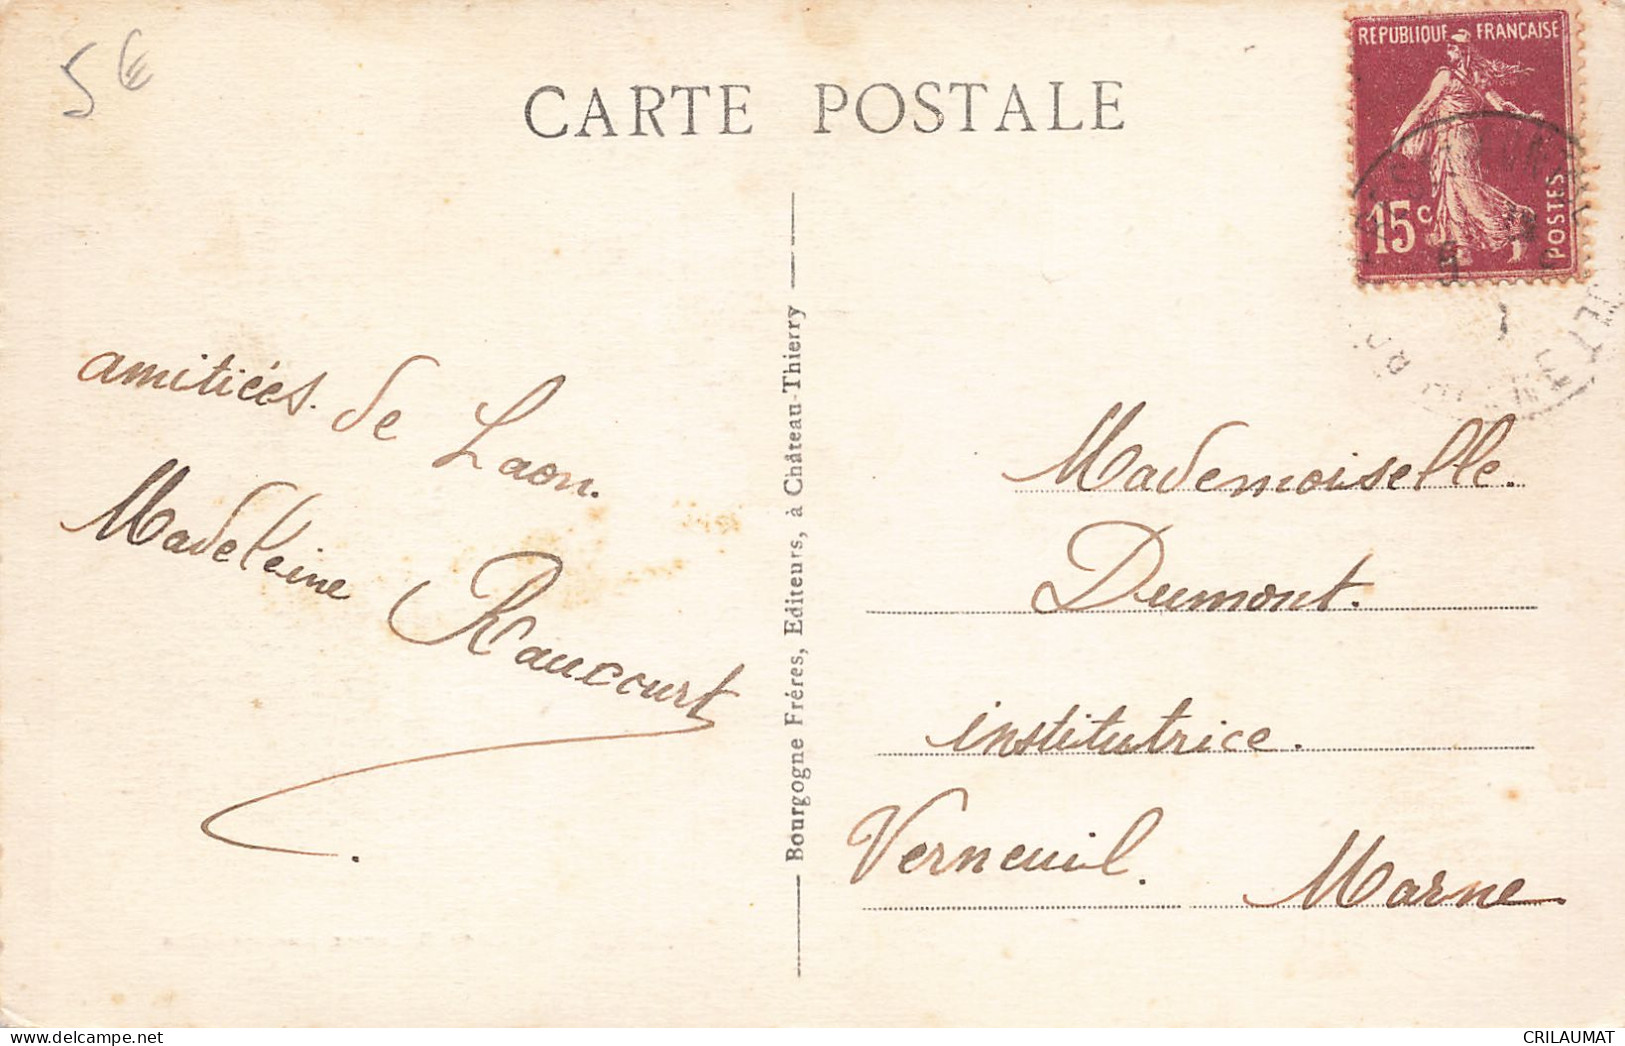 5€
CARTE POSTALE
REPUBLIQUE FRANÇAISE
15c
POSTES
amitiées de Laon.
Madeleine Raucourt
Bourgogne Frères, Editeurs, à Château-Thierry
Mademoiselle.
Dumont.
institutrice.
Verneuil. Marne
CRILAUMAT